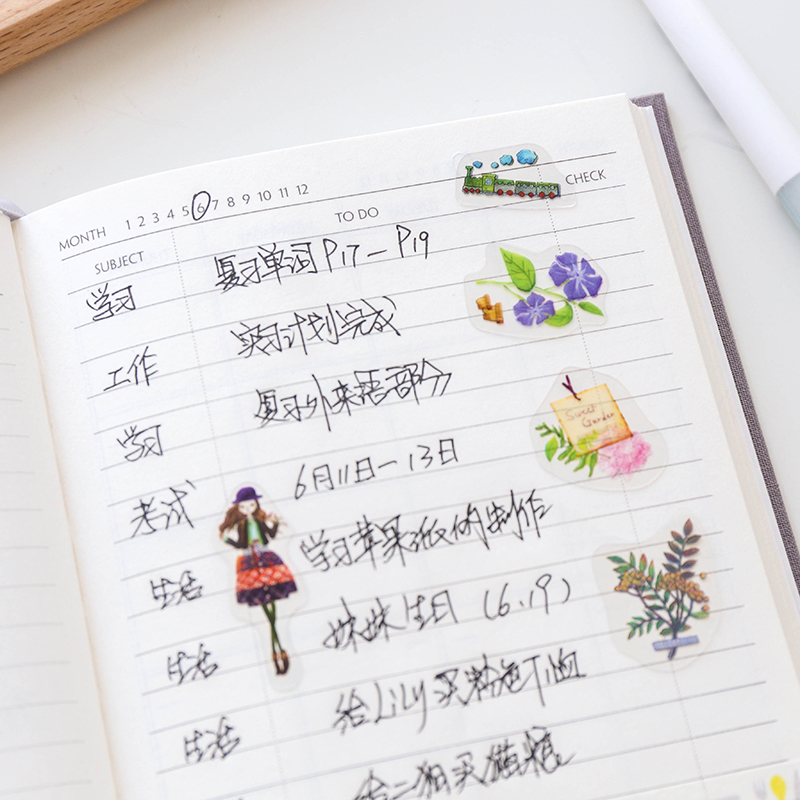 MONTH 1 2 3 4 5 6 7 8 9 10 11 12
SUBJECT TO DO CHECK
学习 复习单词 P17—P19
工作 实习计划完成
学习 复习外来语部分
Sweet Garden
考试 6月11日—13日
生活 学习苹果派的制作
生活 妹妹生日 (6.19)
生活 给Lily买粉色T恤
买猫粮